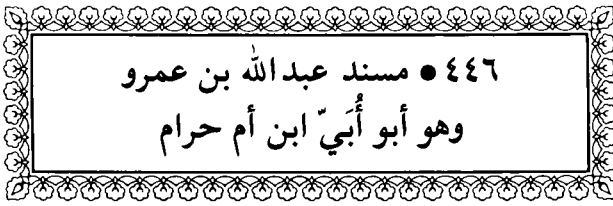 ٤٤٦ ● مسند عبدالله بن عمرو
وهو أبو أُبَيّ ابن أم حرام